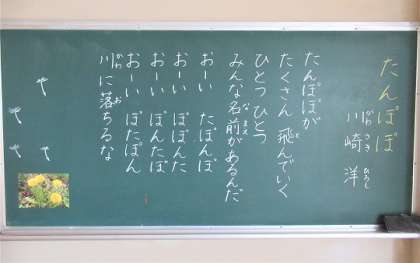 たんぽぽ
川崎 洋
かわ さき ひろし
たんぽぽが
たくさん 飛んでいく
と
ひとつ ひとつ
みんな名前があるんだ
なまえ
おーい たぽんぽ
おーい ぽぽんた
おーい ぽんたぽ
おーい ぽたぽん
川に落ちるな
かわ お